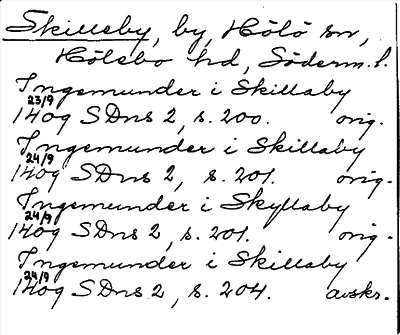 Skilleby, by, Hölö sn,
Hölebo hd, Söderm. l.
Ingemunder i Skillaby
1409 23/9 SDns 2, s. 200. orig.
Ingemunder i Skillaby
1409 24/9 SDns 2, s. 201. orig.
Ingemunder i Skyllaby
1409 24/9 SDns 2, s. 201. orig.
Ingemunder i Skillaby
1409 24/9 SDns 2, s. 204. avskr.